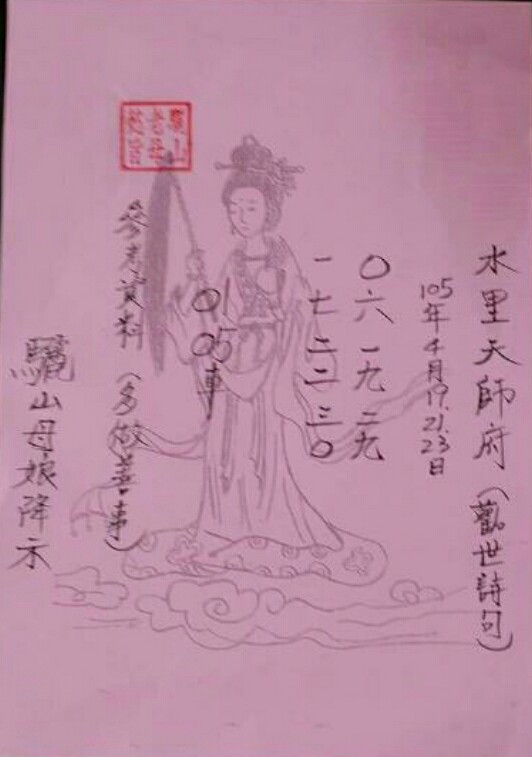 水里天師府(觀世詩句)
105年4月19.21.23日
〇六一九二九
一七二二三〇
01.05車
參考資料(多做善事)
驪山母娘降示